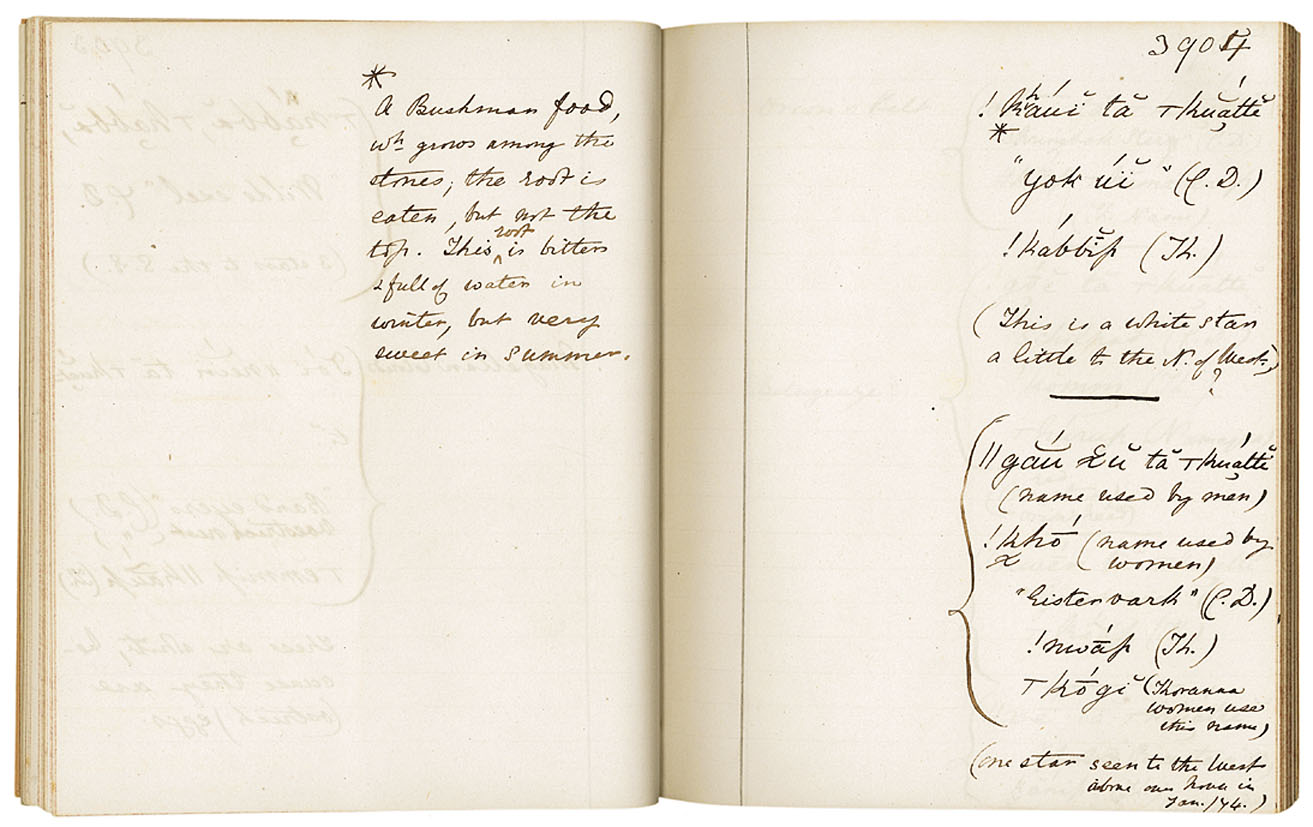 *
A Bushman food,
wh. grows among the
stones; the root is
eaten, but not the
top. This root is bitter
& full of water in
winter, but very
sweet in summer.
3904
!kháuĭ tă ⊤kŭắttĕ
*
"Yok úĭ" (C. D.)
!kábbĭp (Th.)
(This is a white star
a little to the N. of West.)
?
ǁgắu χŭ tă ⊤kŭắttĕ
(name used by men)
!khó (name used by
women)
"Eistervark" (C. D.)
!nwáp (Th.)
⊤kógĭ (Koranna
women use
this name)
(one star seen to the West
above our house in
Jan. /74.)